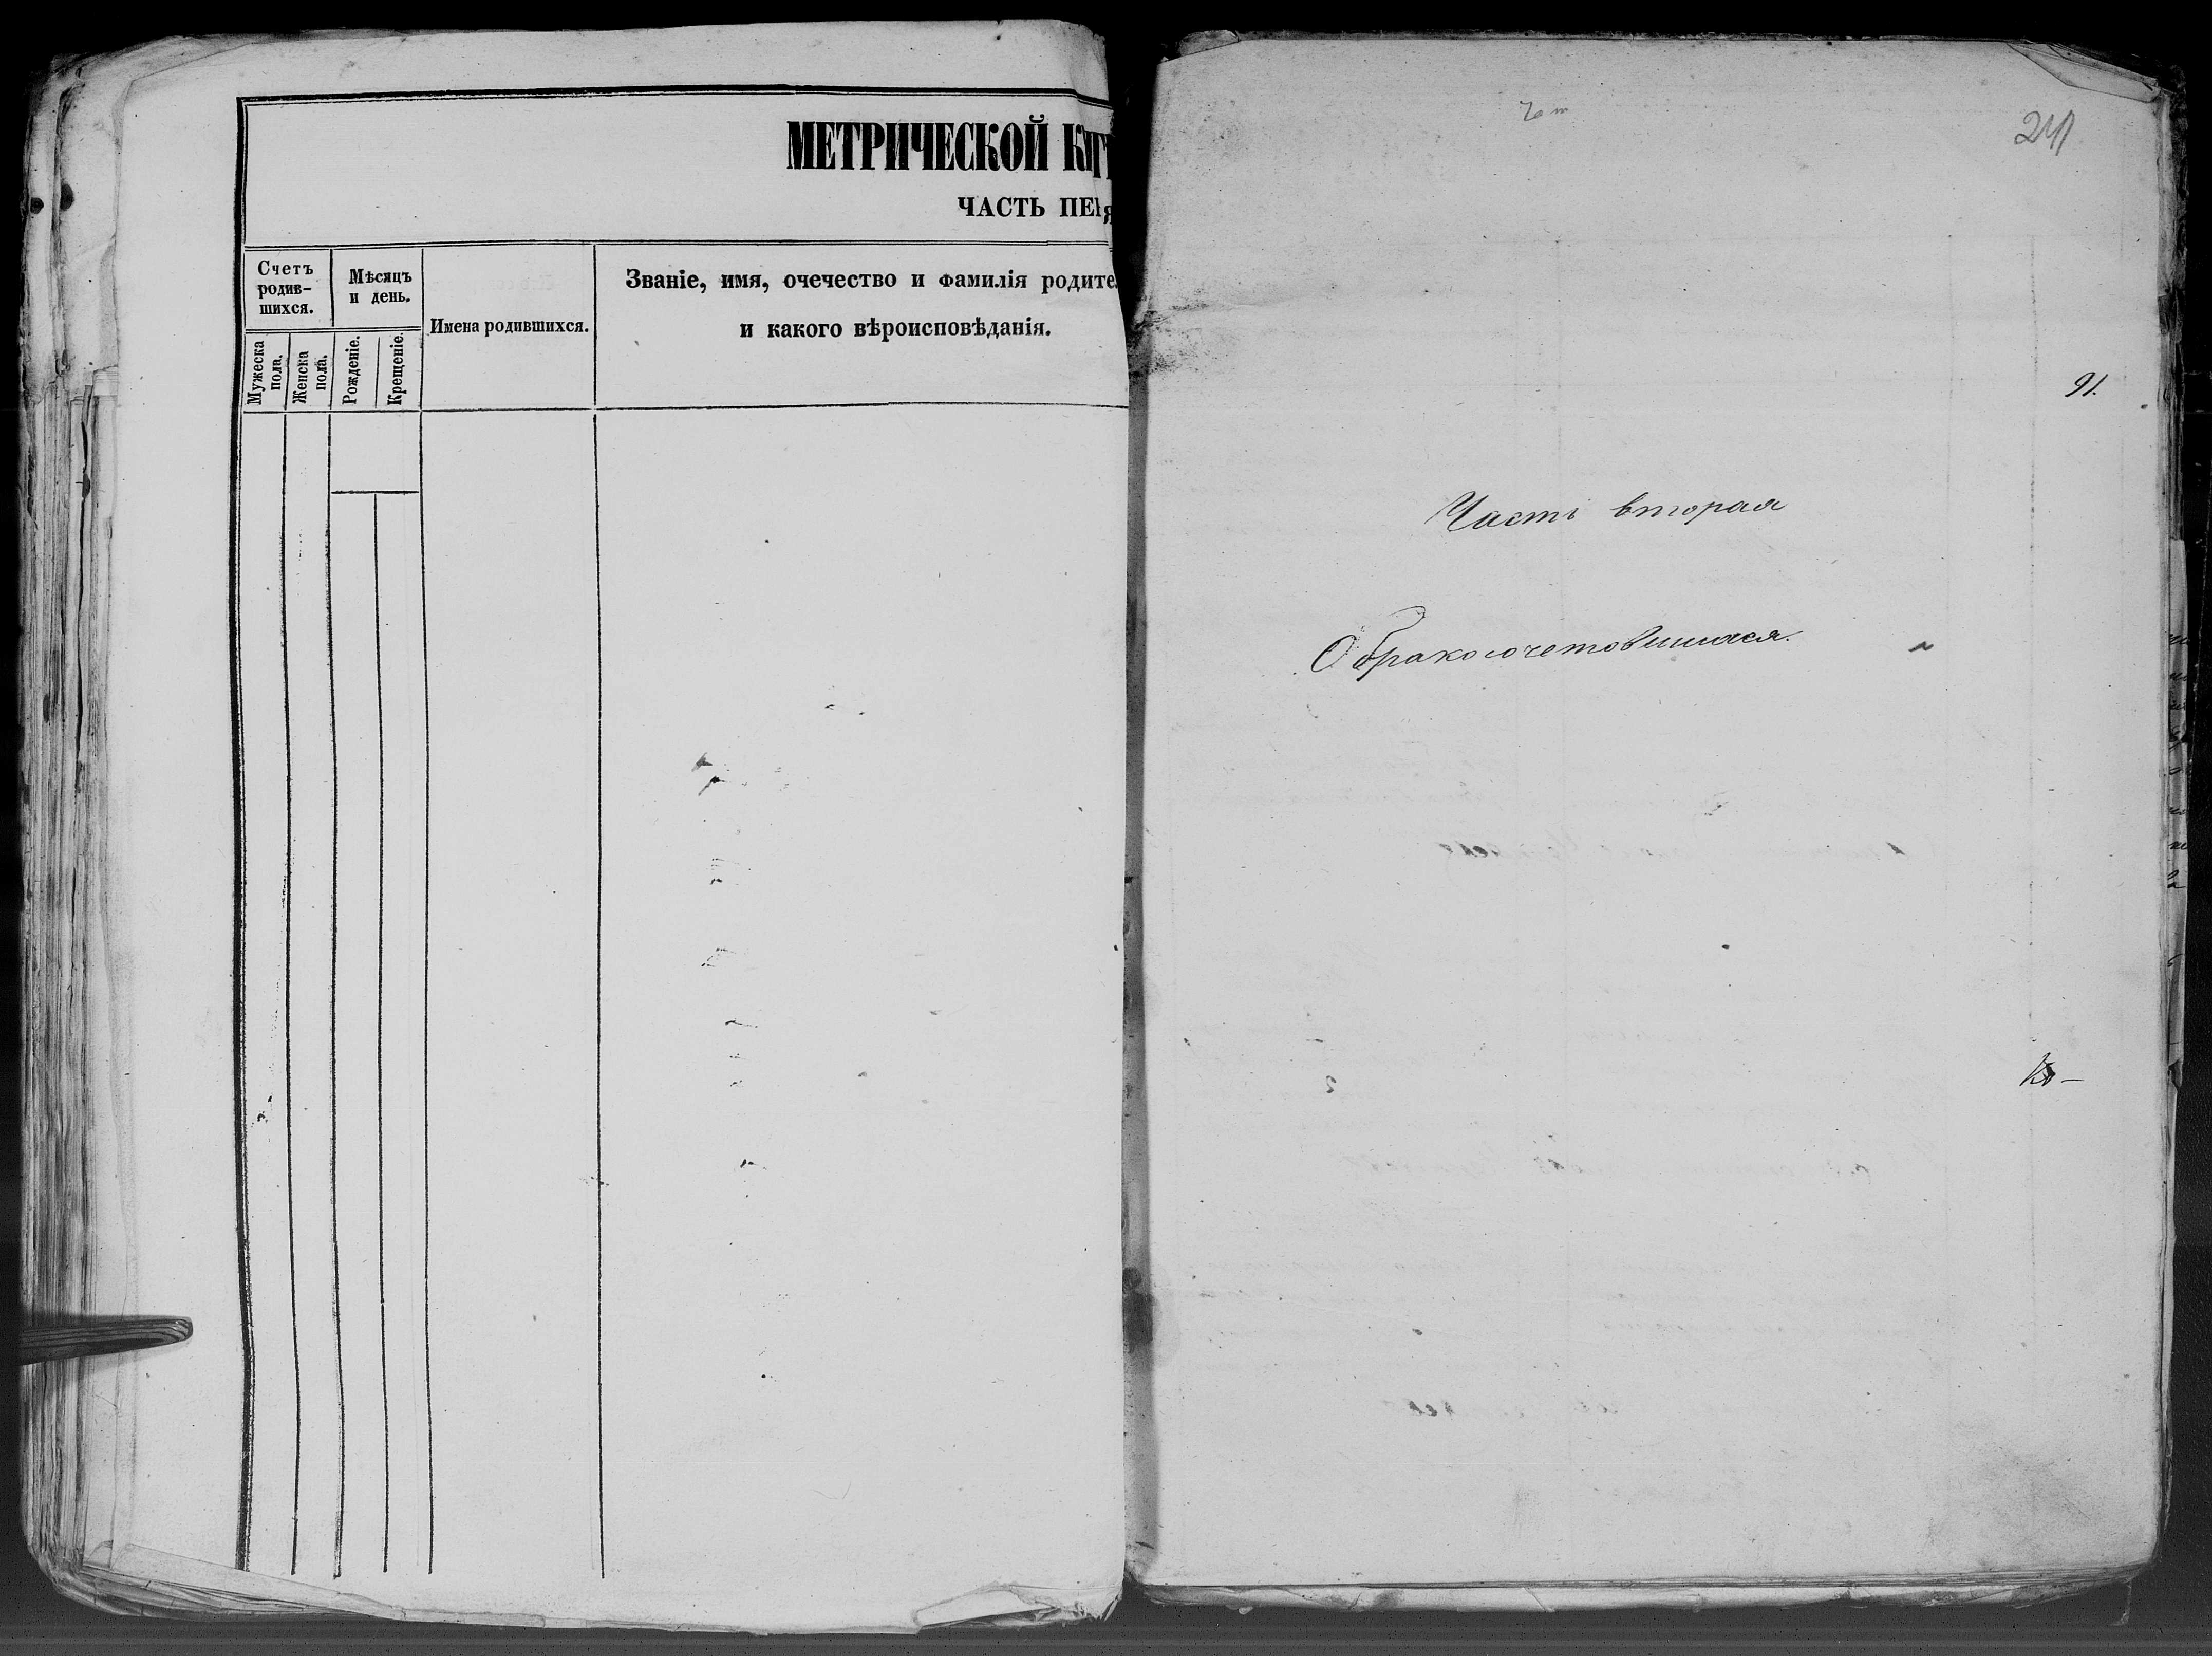 МЕТРИЧЕСКОЙ
ЧАСТЬ
Счетъ
родив-
шихся.
Мѣсяцъ
и день.
Имена родившихся.
Званіе, имя, очечество и фамилія родите
и какого вѣроисповѣданія.
Мужеска
пола.
Женска
пола.
Рожденіе.
Крещеніе.
241
91.
Часть вторая
О бракосочетовшихся.